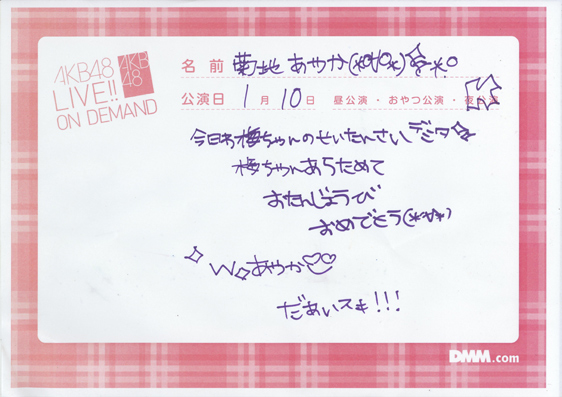 AKB48
LIVE!!
ON DEMAND
AKB
48
名前 菊地あやか(*°∀°*)
公演日 1月10日 昼公演・おやつ公演・夜公演
今日わ梅ちゃんのせいたんさいデシタ☆
梅ちゃんあらためて
おたんじょうび
おめでとう(*°∀*)
Wあやか
だあいスキ!!!
DMM.com